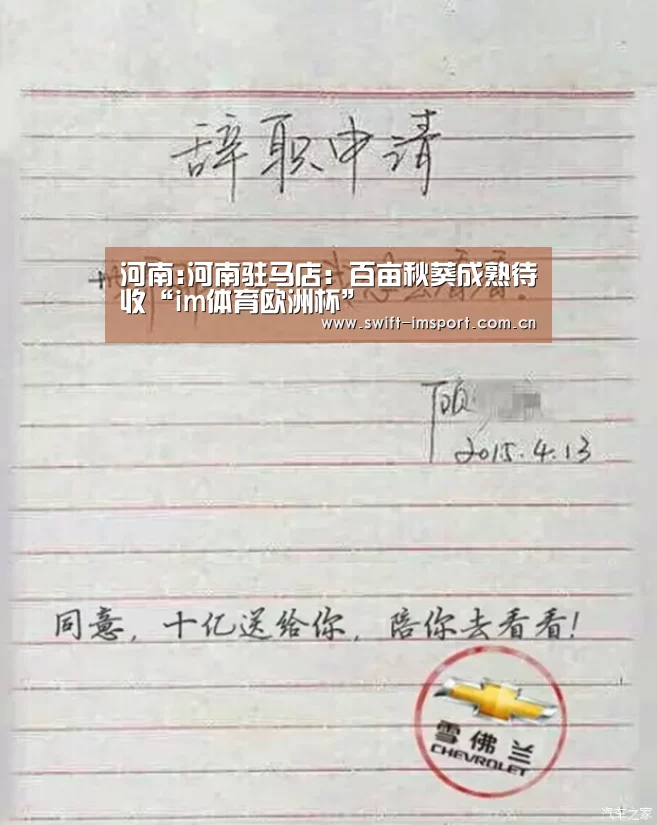 辞职申请
河南:河南驻马店：百亩秋葵成熟待
收“im体育欧洲杯”
www.swift-imsport.com.cn
顾
2015.4.13
同意，十亿送给你，陪你去看看！
雪佛兰
CHEVROLET
汽车之家